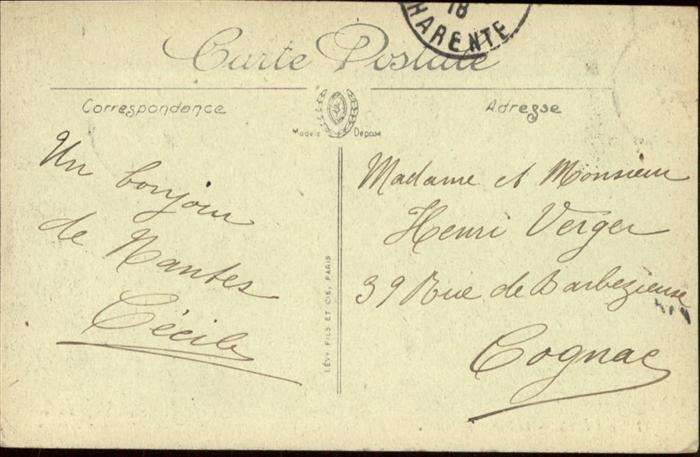 18
HARENTE
Carte Postale
Correspondance
Adresse
Modèle Déposé
Un bonjour
de Nantes
Cécile
LÉVY FILS ET CIE, PARIS
Madame et Monsieur
Henri Verger
39 Rue de Barbezieux
Cognac